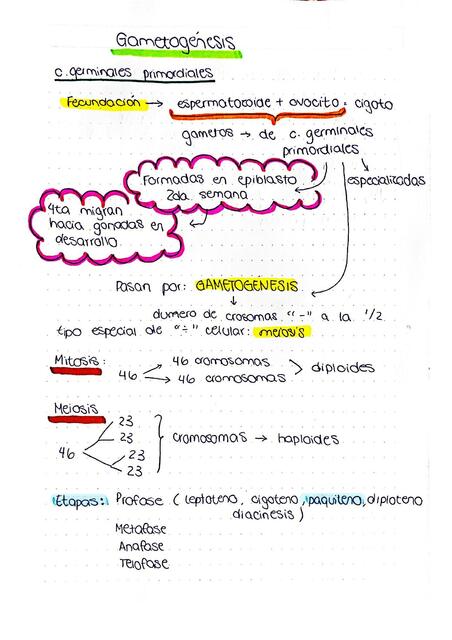 Gametogénesis
c. germinales primordiales
Fecundación → espermatozoide + ovocito = cigoto
gametos → de c. germinales
primordiales
especializadas
Formadas en epiblasto
2da. semana
4ta migran
hacia gonadas en
desarrollo.
Pasan por: GAMETOGENESIS
↓
dumero de crosomas "-" a la 1/2
tipo especial de "÷" celular: meiosis
Mitosis:
46 cromosomas
46 → 46 cromosomas > diploides
Meiosis
23
23
46 cromosomas → haploides
23
23
Etapas: Profase (leptoteno, cigoteno, paquiteno, diploteno
diacinesis)
Metafase
Anafase
Telofase